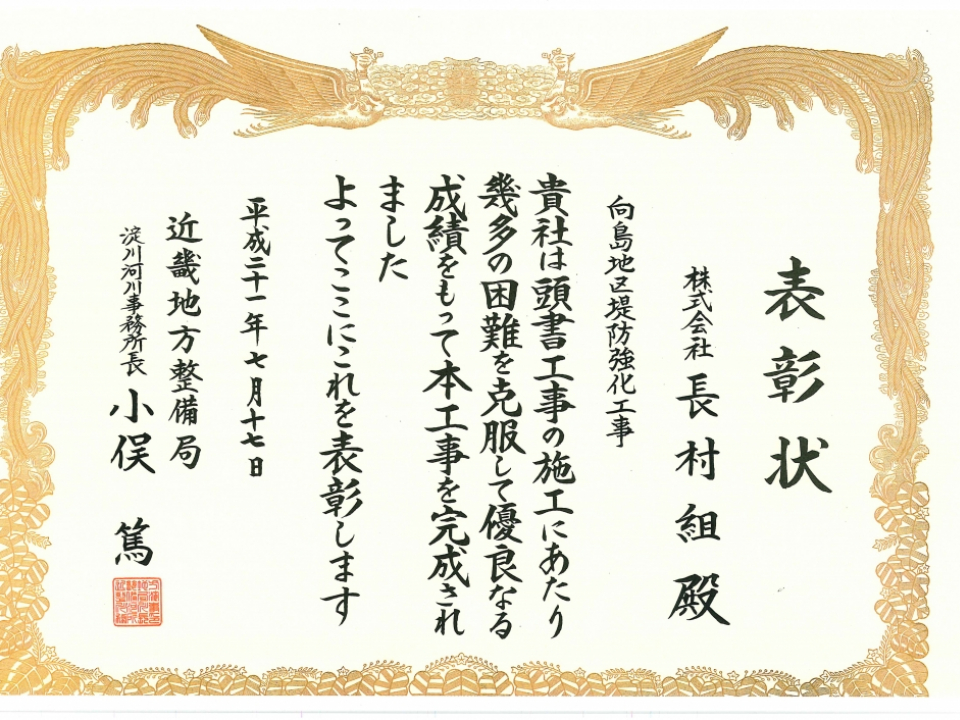 表彰状
株式会社 長村組 殿
向島地区堤防強化工事
貴社は頭書工事の施工にあたり
幾多の困難を克服して優良なる
成績をもって本工事を完成され
ました
よってここにこれを表彰します
平成二十一年七月十七日
近畿地方整備局
淀川河川事務所長 小俣 篤